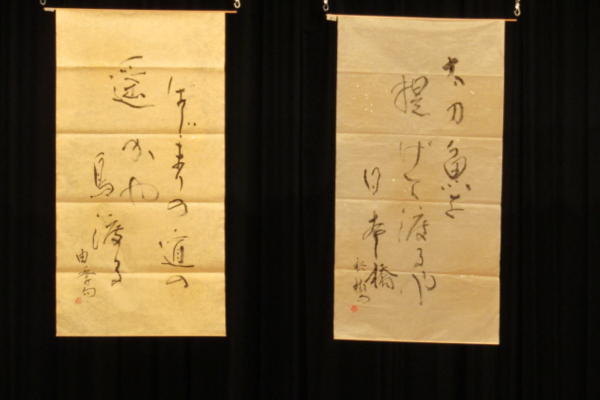 太刀魚を
提げて渡るや
日本橋
はじまりの道の
遥かや
鳥渡る